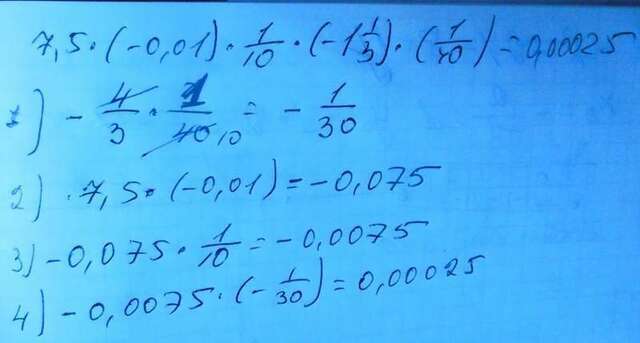 7,5·(-0,01)·1/10·(-1 1/3)·(1/40)=0,00025
1) -4/3·1/40 10=-1/30
2) 7,5·(-0,01)=-0,075
3) -0,075·1/10=-0,0075
4) -0,0075·(-1/30)=0,00025